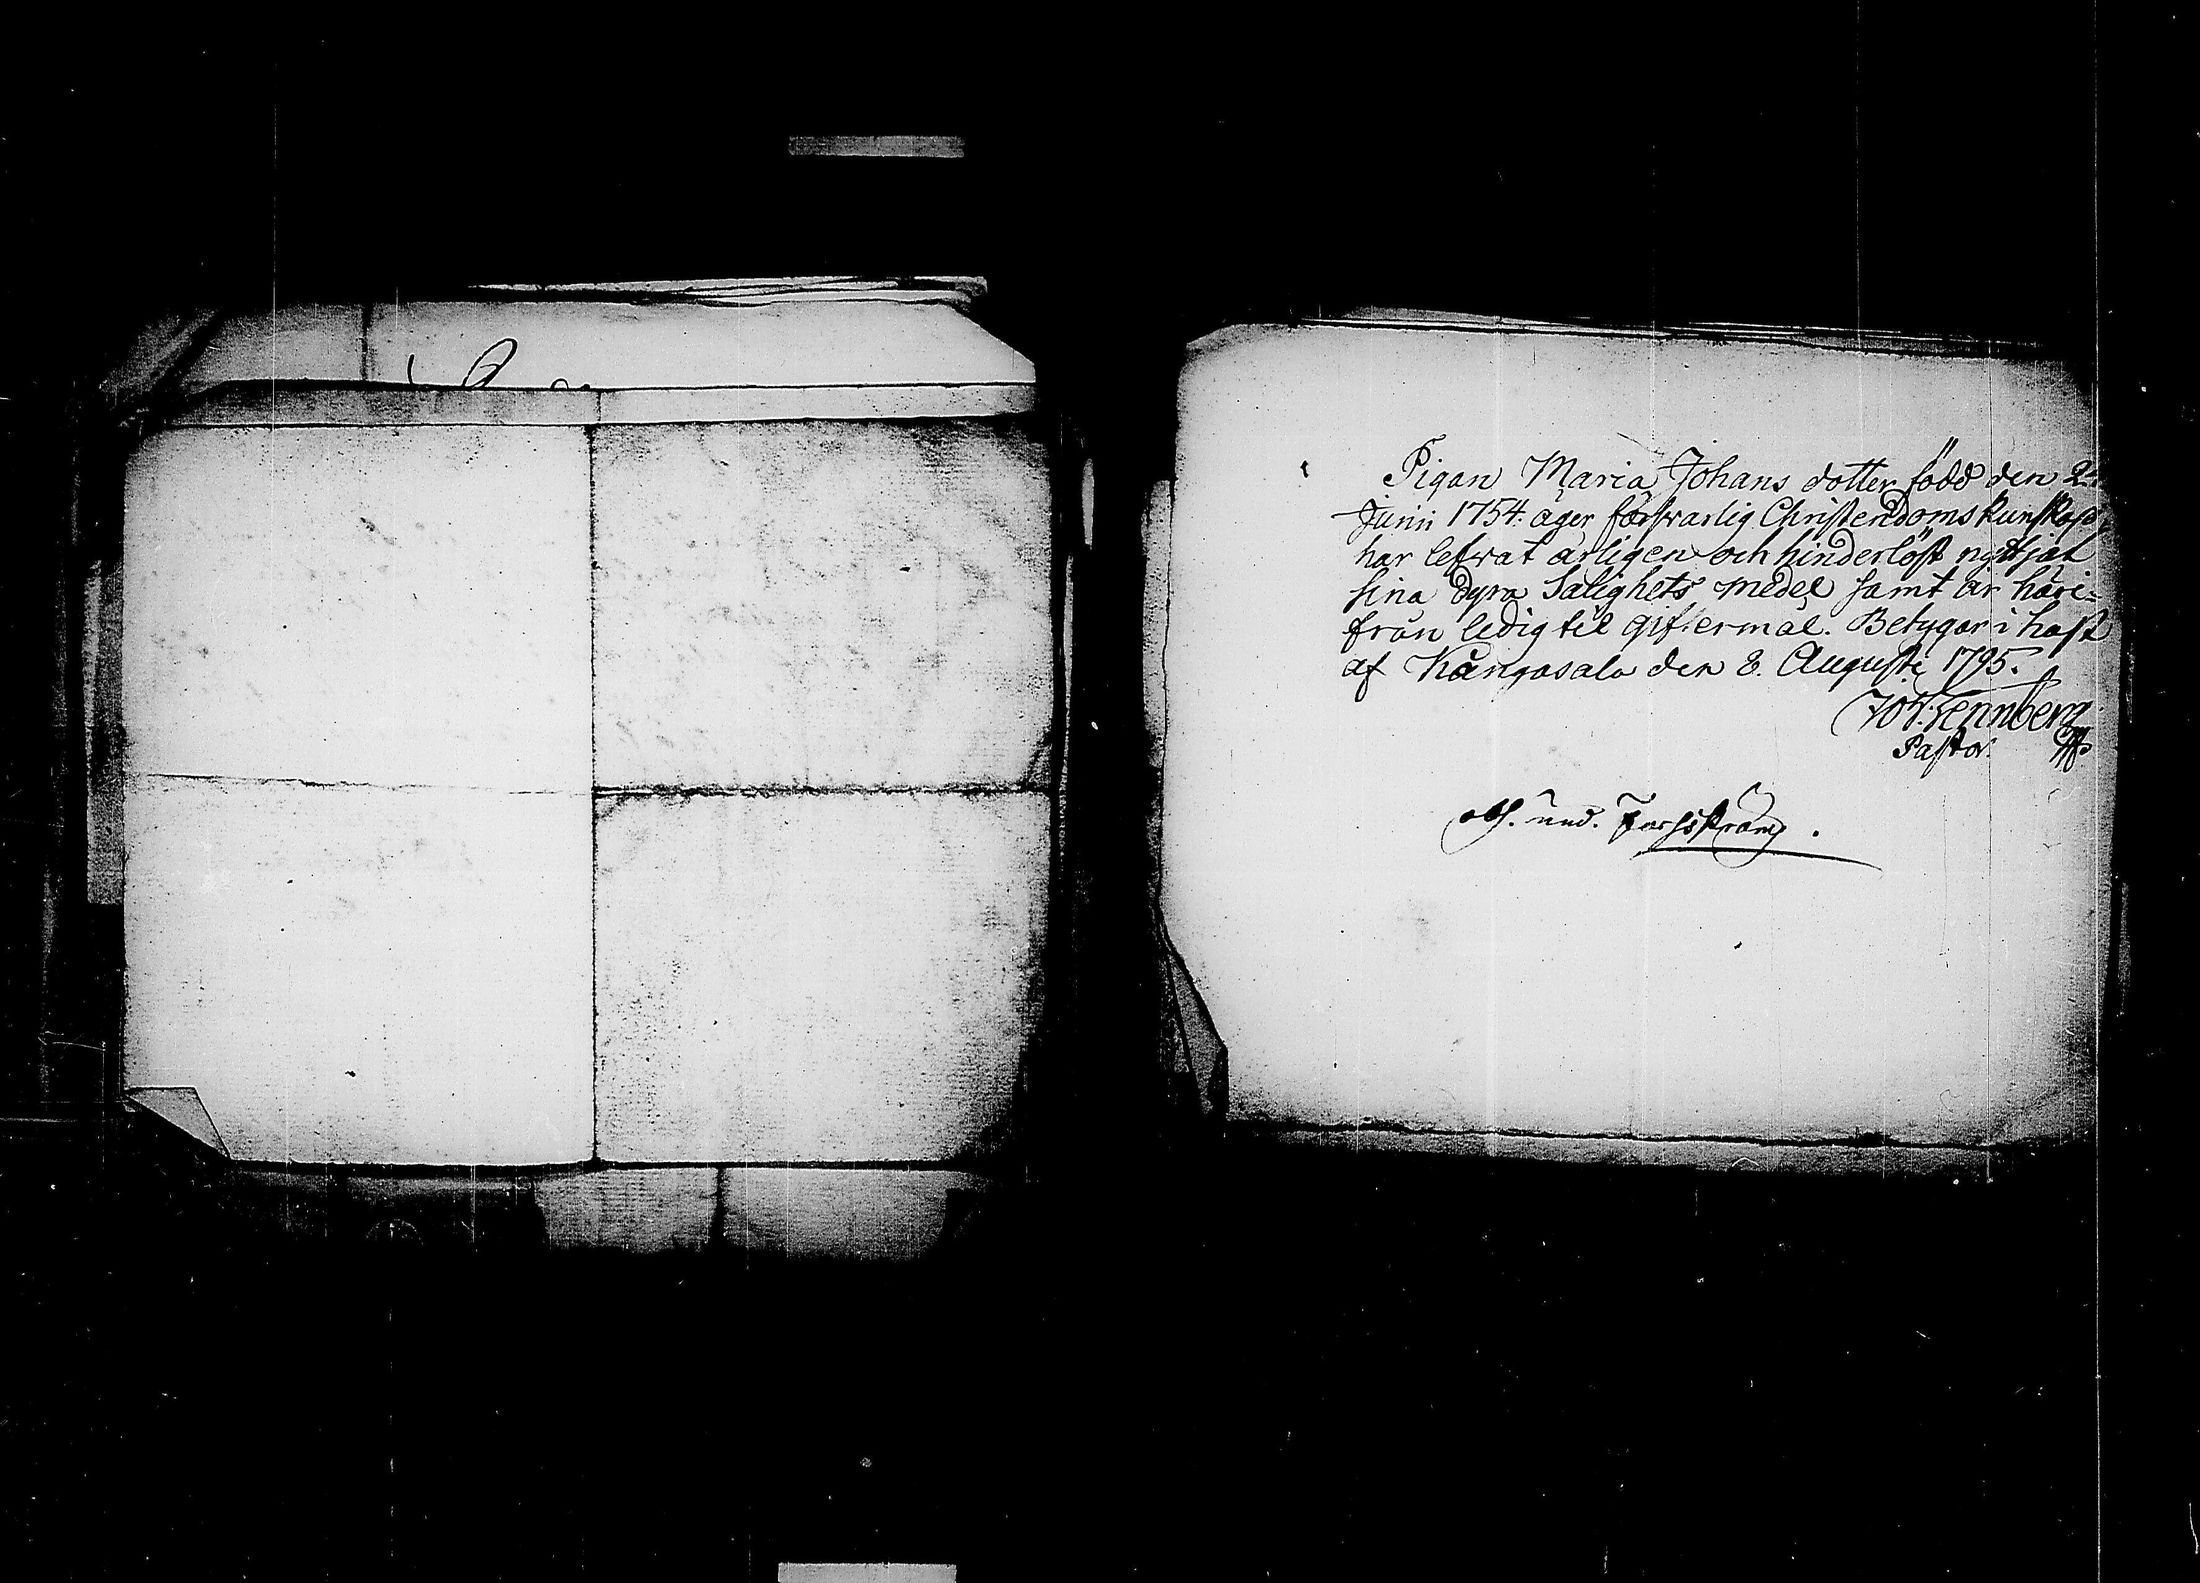 Pigan Maria Johans dotter född den 2
Junii 1754. äger försvarlig Christendoms kunskap,
har lefvat ärligen och hinderlöst nyttjat
sina dyra Salighets medel samt är häri-
från ledig til giftermål. Betygar i hast
af Kångasala den 8. Augusti 1795.
Pastor.
und. Forsström.